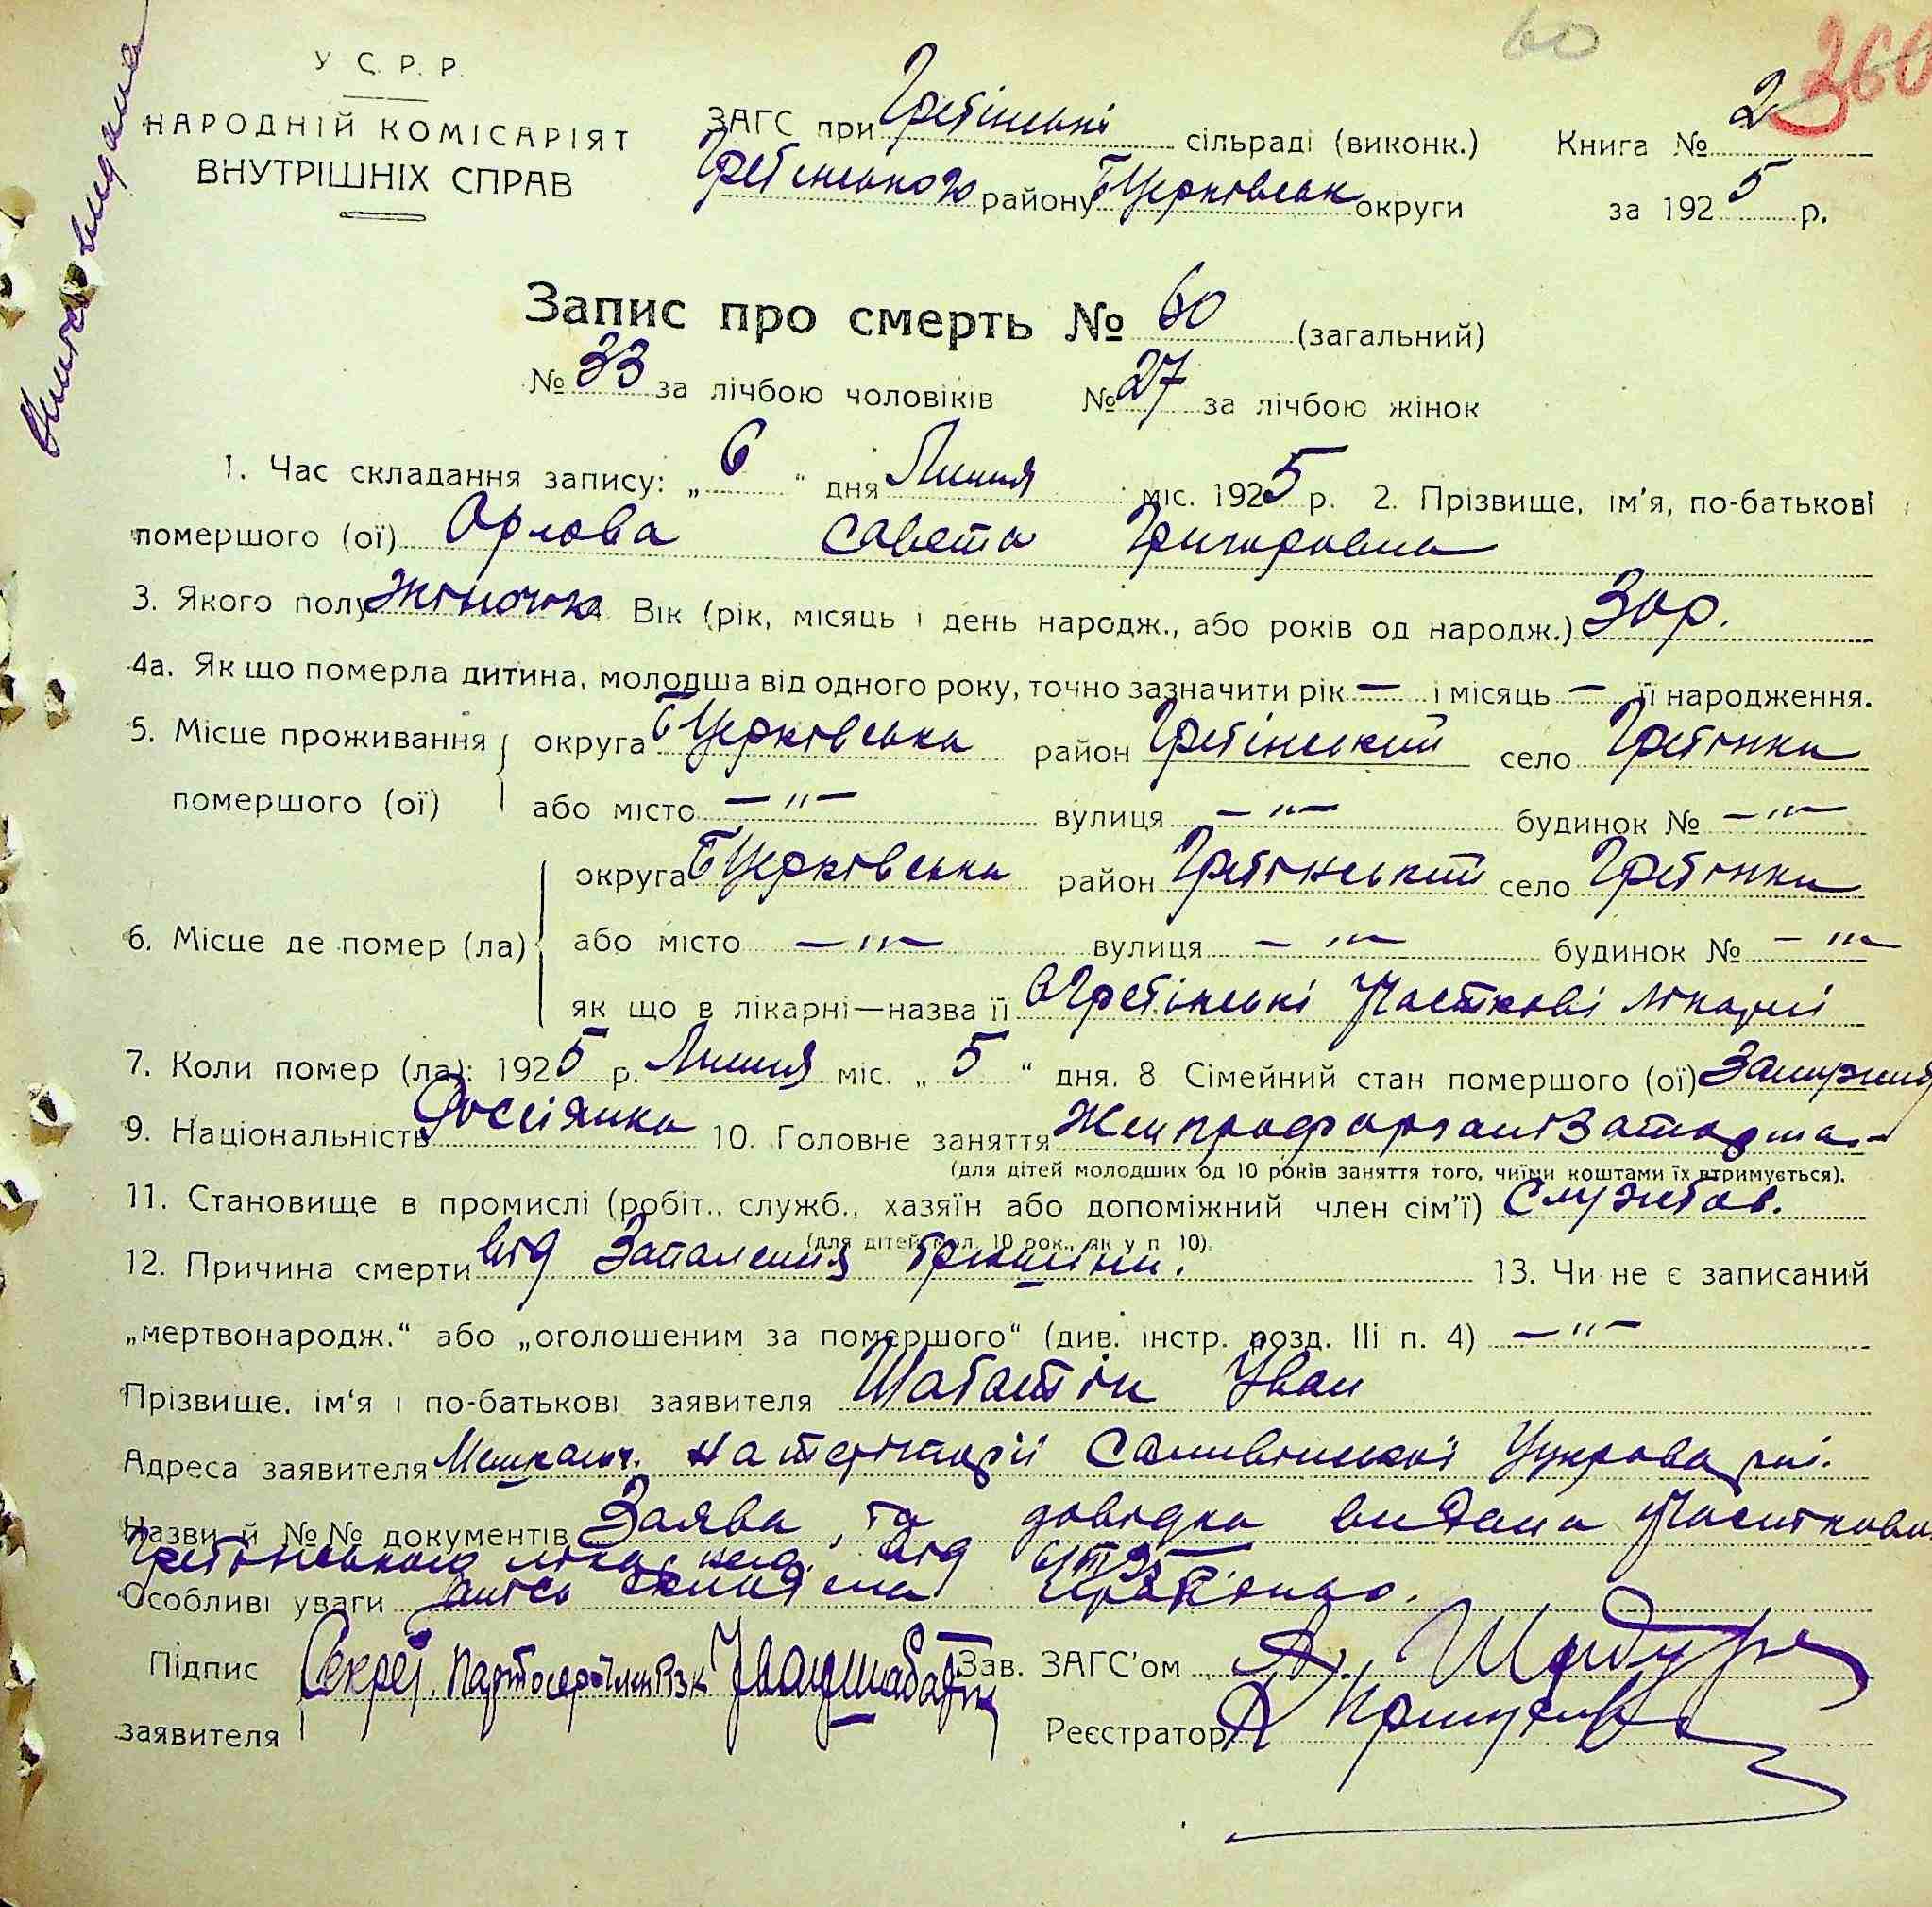 60
360
Виписка видана
У С. Р. Р.
НАРОДНІЙ КОМІСАРІЯТ
ВНУТРІШНІХ СПРАВ
ЗАГС при Гребінські сільраді (виконк.) Книга № 2
Гребінського району БЦерківськ округи за 1925 р.
Запис про смерть № 60 (загальний)
№ 33 за лічбою чоловіків № 27 за лічбою жінок
1. Час складання запису: „6“ дня Липня міс. 1925 р. 2. Прізвище, ім'я, по-батькові
помершого (ої) Орлова Савета Григоровна
3. Якого полу жіночок 4. Вік (рік, місяць і день народж., або років од народж.) 30 р.
4а. Як що померла дитина, молодша від одного року, точно зазначити рік — і місяць — її народження.
5. Місце проживання округа БЦерківська район Гребінський село Гребінки
помершого (ої) або місто —"— вулиця —"— будинок № —"—
округа БЦерківська район Гребінський село Гребінки
6. Місце де помер (ла) або місто —"— вулиця —"— будинок № —"—
як що в лікарні—назва її в Гребінські Участкові лікарні
7. Коли помер (ла): 1925 р. Липня міс. „5“ дня. 8 Сімейний стан помершого (ої) Замужня
9. Національність Россіянка 10. Головне заняття Женпрофорганізаторша
(для дітей молодших од 10 років заняття того, чиїми коштами їх втримується).
11. Становище в промислі (робіт., служб., хазяїн або допоміжний член сім'ї) Службов.
(для дітей мол. 10 рок., як у п 10).
12. Причина смерти від Запалення брюшини. 13. Чи не є записаний
„мертвонародж.“ або „оголошеним за помершого“ (див. інстр. розд. III п. 4) —"—
Прізвище, ім'я і по-батькові заявителя Шабатін Іван
Адреса заявителя Мешкает. на теріторії Саливінської Цукроварні.
Назви й №№ документів Заява, та довідка видана Участковою
Гребінською від
Особливі уваги
Підпис Секрет. Іван Шабатін Зав. ЗАГС'ом
заявителя Реєстратор